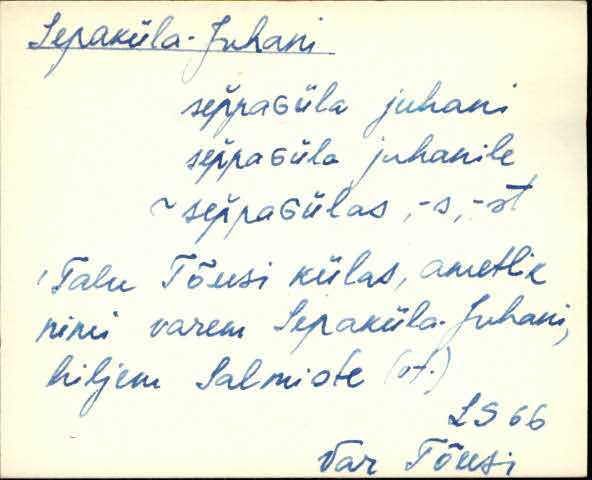 Sepaküla-Juhani
sep̆paɢüla juhani
sep̆paɢüla juhanile
~ sep̆paɢülas, -s, -st
Talu Tõusi külas, ametlik
nimi varem Sepaküla-Juhani,
hiljem Salmiote (vt.)
LS 66
Var Tõusi